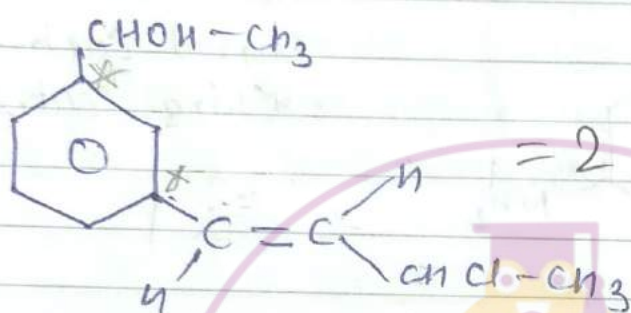 CHOH-CH3
= 2
H
C = C
H
CH Cl-CH3